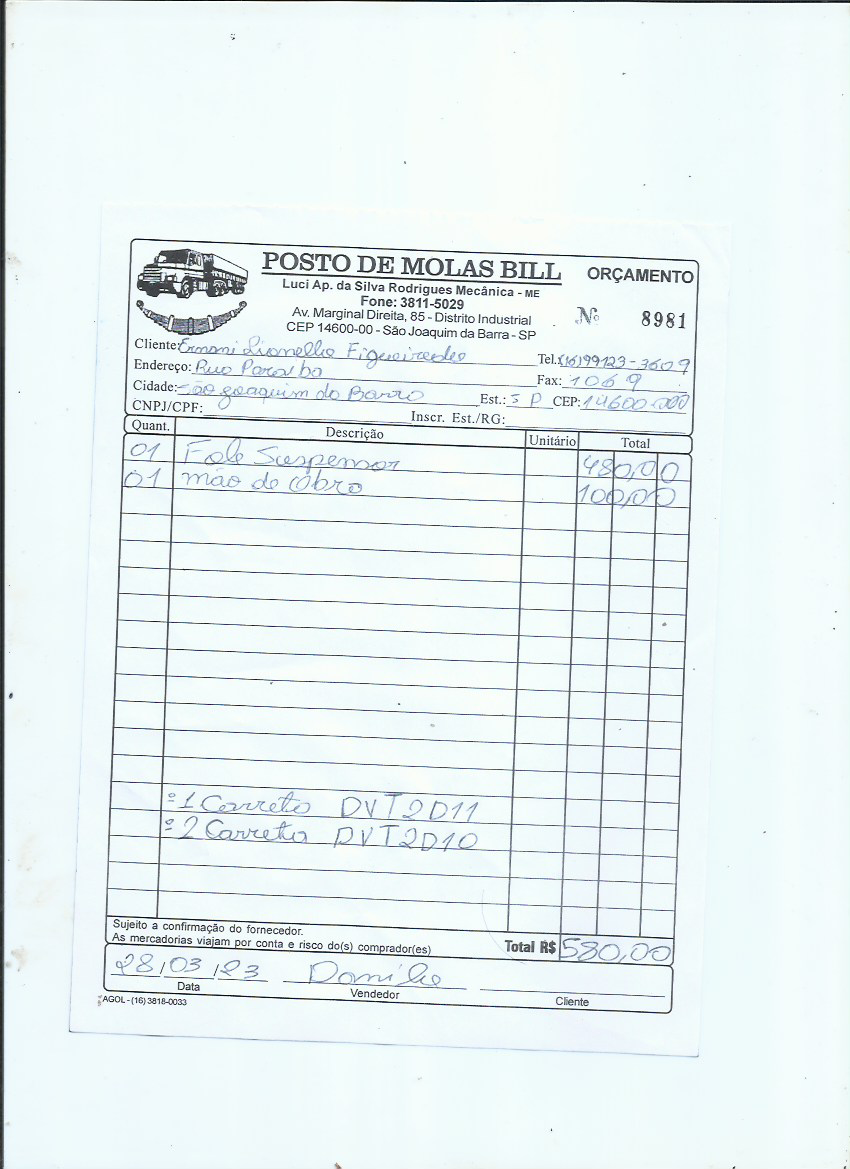 POSTO DE MOLAS BILL
ORÇAMENTO
Luci Ap. da Silva Rodrigues Mecânica - ME
Fone: 3811-5029
Av. Marginal Direita, 85 - Distrito Industrial
CEP 14600-00 - São Joaquim da Barra - SP
Nº 8981
Cliente: Ernani Lionello Figueiredo Tel.: (16)99123-3609
Endereço: Rua Paraíba Fax: 1069
Cidade: São Joaquim da Barra Est.: SP CEP: 14600-000
CNPJ/CPF: Inscr. Est./RG:
Quant. Descrição Unitário Total
01 Fole Suspensor 480,00
01 mão de Obra 100,00
º1 Carreta DVT2D11
º2 Carreta DVT2D10
Sujeito a confirmação do fornecedor.
As mercadorias viajam por conta e risco do(s) comprador(es) Total R$ 580,00
28/03/23 Danilo
Data Vendedor Cliente
AGOL - (16) 3818-0033